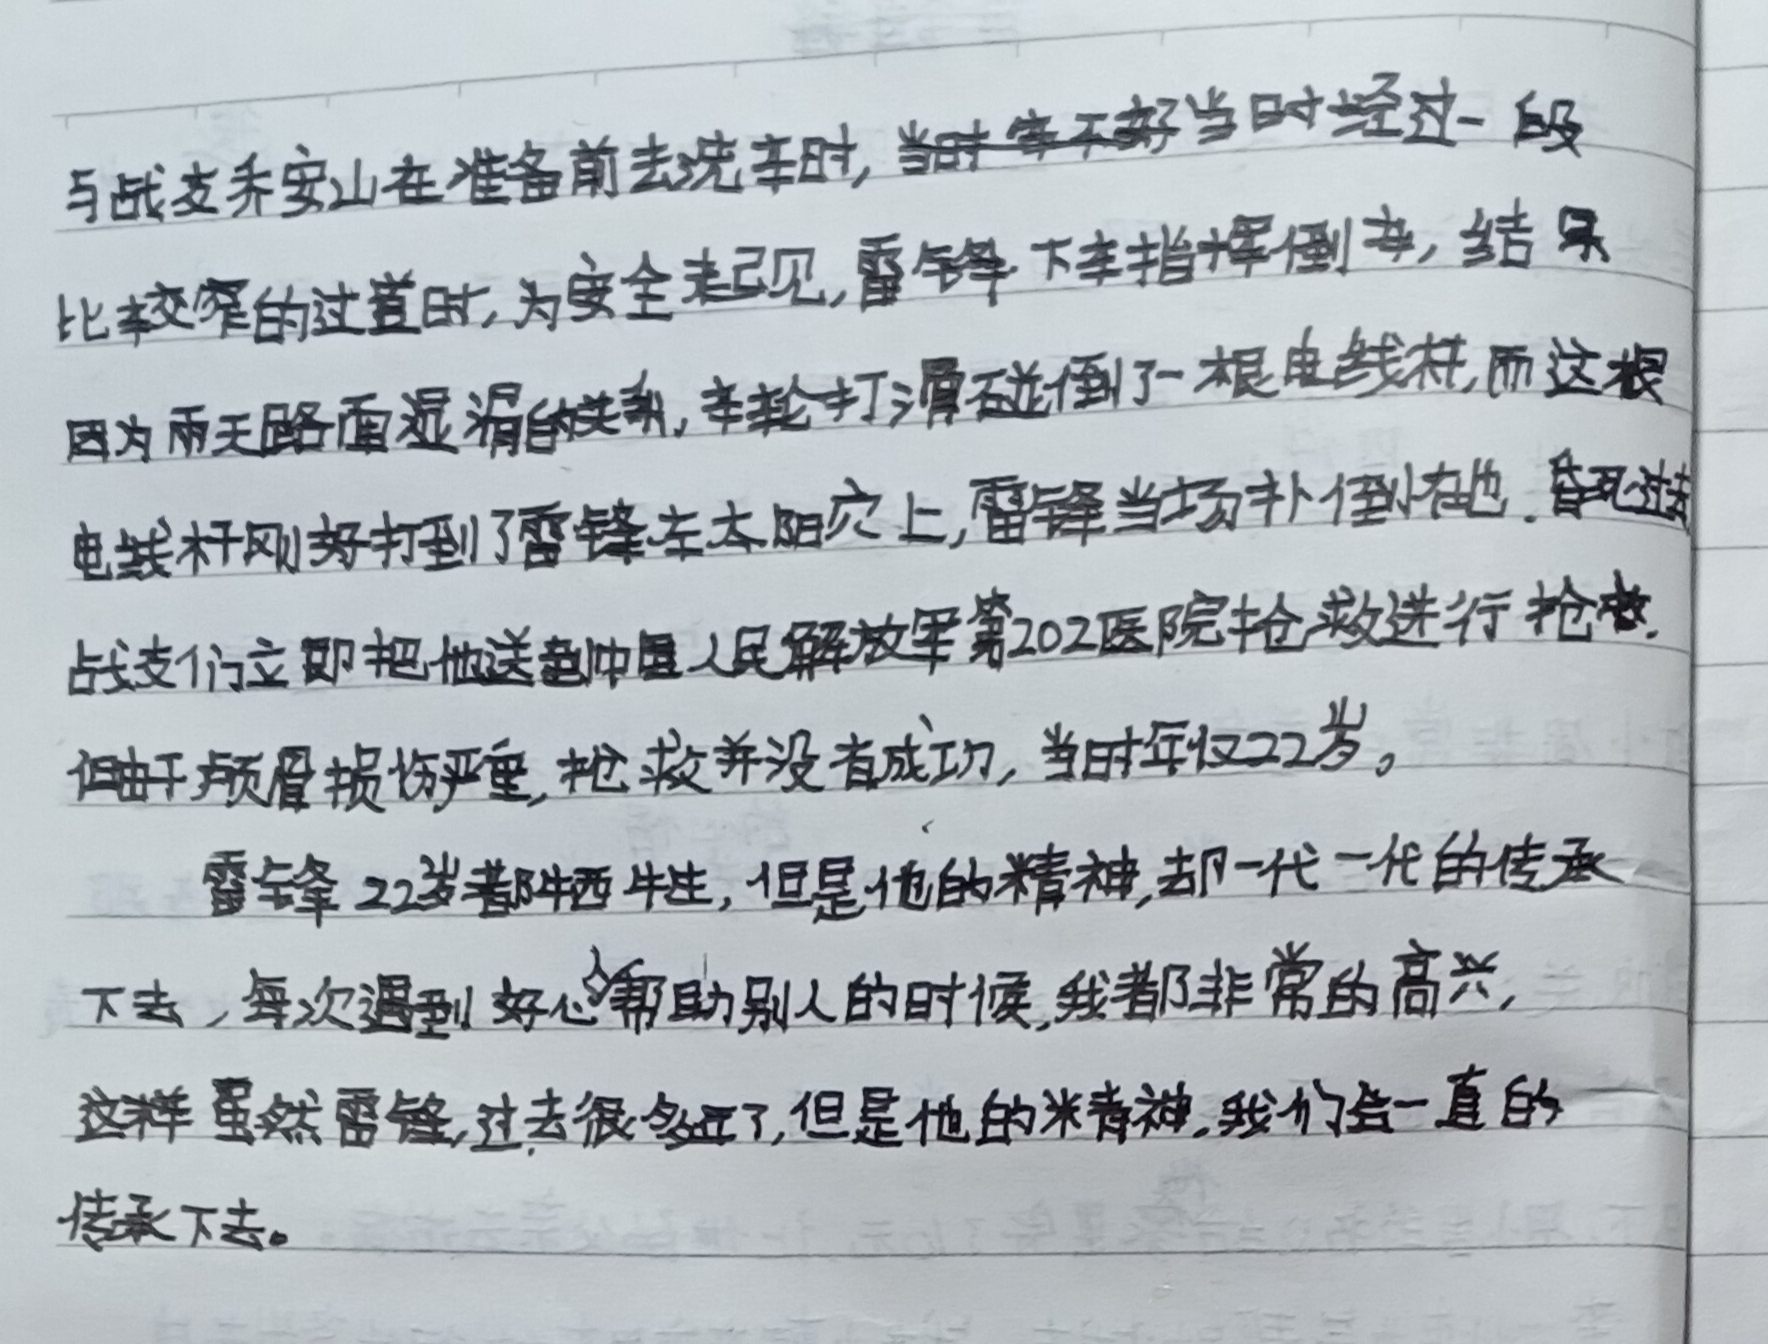 与战友乔安山在准备前去洗车时,当时经过一段
比较窄的过道时,为安全起见,雷锋下车指挥倒车,结果
因为雨天路面湿滑的关系,车轮打滑碰倒了一根电线杆,而这根
电线杆刚好打到了雷锋左太阳穴上,雷锋当场扑倒在地.昏死过去
战友们立即把他送到中国人民解放军第202医院抢救进行抢救.
但由于颅骨损伤严重,抢救并没有成功,当时年仅22岁。
雷锋22岁都牺牲,但是他的精神,却一代一代的传承
下去,每次遇到好心人帮助别人的时候,我都非常的高兴,
这样虽然雷锋,过去很多年了,但是他的精神.我们会一直的
传承下去。